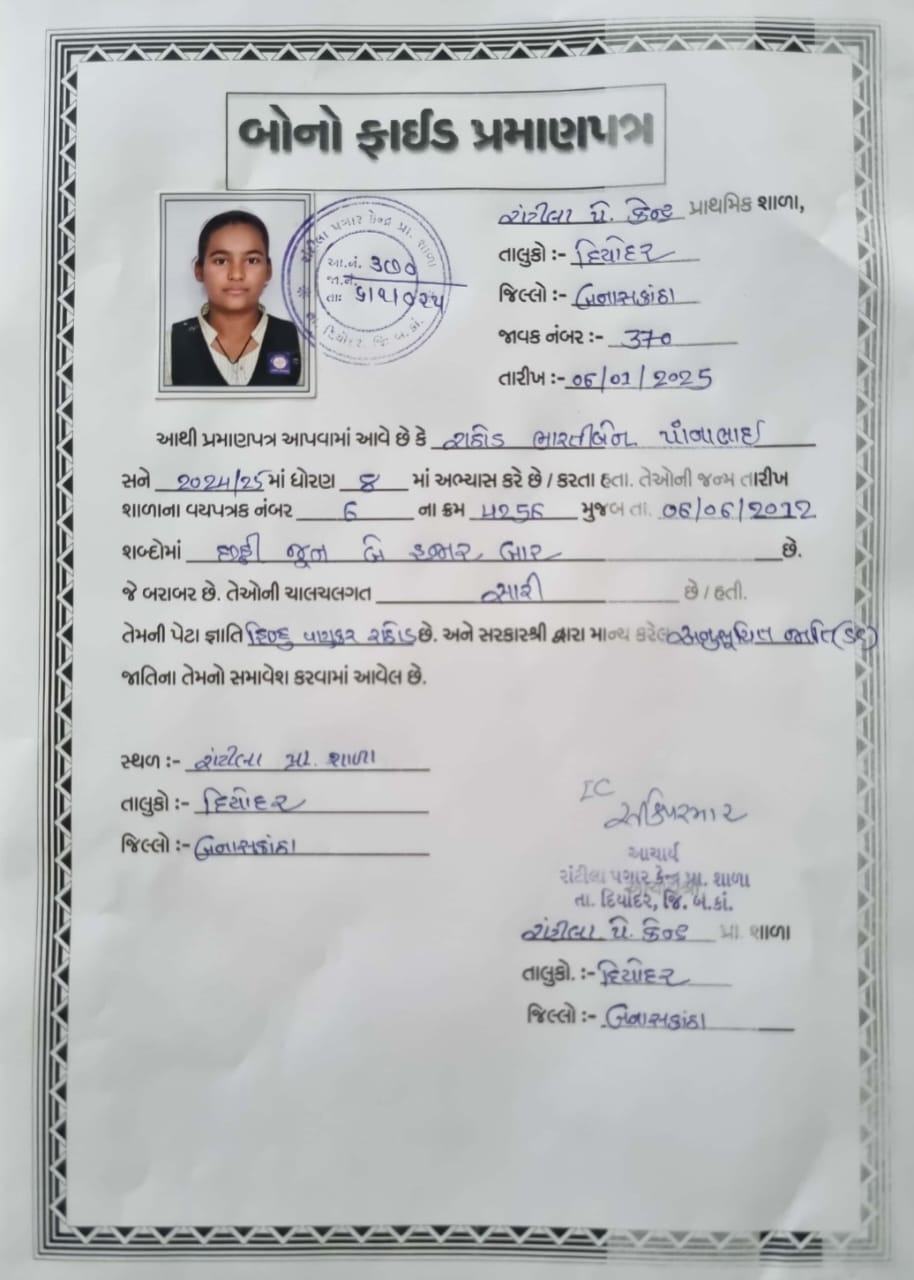 બોનો ફાઈડ પ્રમાણપત્ર
રાંટીલા પગાર કેન્દ્ર પ્રા. શાળા
આ.નં. ૩૭૦
જા.નં.
તાઃ ૬/૧/૦૨૫
તા. દિયોદર, જિ. બ.કાં.
રાંટીલા પે. કેન્દ્ર પ્રાથમિક શાળા,
તાલુકો :- દિયોદર
જિલ્લો :- બનાસકાંઠા
જાવક નંબર :- 370
તારીખ :- 06/01/2025
આથી પ્રમાણપત્ર આપવામાં આવે છે કે રાઠોડ ભારતીબેન પીનાભાઈ
સને 2024/25 માં ધોરણ ૭ માં અભ્યાસ કરે છે / કરતા હતા. તેઓની જન્મ તારીખ
શાળાના વયપત્રક નંબર 6 ના ક્રમ ૫256 મુજબ તા. 06/06/2012
શબ્દોમાં છઠ્ઠી જૂન બે હજાર બાર છે.
જે બરાબર છે. તેઓની ચાલચલગત સારી છે / હતી.
તેમની પેટા જ્ઞાતિ હિન્દુ વણકર રાઠોડ છે. અને સરકારશ્રી દ્વારા માન્ય કરેલ અનુસૂચિત જાતિ
જાતિના તેમનો સમાવેશ કરવામાં આવેલ છે.
સ્થળ :- રાંટીલા પ્રા. શાળા
તાલુકો :- દિયોદર
જિલ્લો :- બનાસકાંઠા
IC
આચાર્ય
રાંટીલા પગાર કેન્દ્ર પ્રા. શાળા
તા. દિયોદર, જિ. બ.કાં.
રાંટીલા પે. કેન્દ્ર પ્રા. શાળા
તાલુકો. :- દિયોદર
જિલ્લો :- બનાસકાંઠા